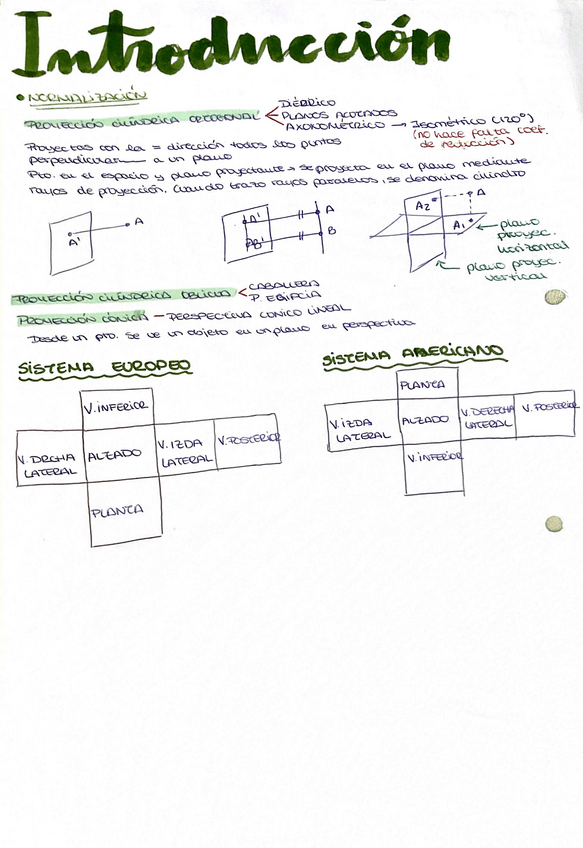 Introducción
• NORMALIZACIÓN
PROYECCIÓN CILÍNDRICA ORTOGONAL
DIÉDRICO
PLANOS ACOTADOS
AXONOMÉTRICO → Isométrico (120º)
(no hace falta coef. de reducción)
Proyectas con la = dirección todos los puntos
perpendicular a un plano
Pto. en el espacio y plano proyectante → se proyecta en el plano mediante
rayos de proyección. Cuando trazo rayos paralelos, se denomina cilindro
A' A
A' A
B' B
A2 A
A1 ← plano proyec. horizontal
plano proyec. vertical
PROYECCIÓN CILÍNDRICA OBLICUA
CABALLERA
P. EGIPCIA
PROYECCIÓN CÓNICA — PERSPECTIVA CONICO LINEAL
Desde un pto. se ve un objeto en un plano en perspectiva
SISTEMA EUROPEO
V. INFERIOR
V. DRCHA LATERAL
ALZADO
V. IZDA LATERAL
V. POSTERIOR
PLANTA
SISTEMA AMERICANO
PLANTA
V. IZDA LATERAL
ALZADO
V. DERECHA LATERAL
V. POSTERIOR
V. INFERIOR